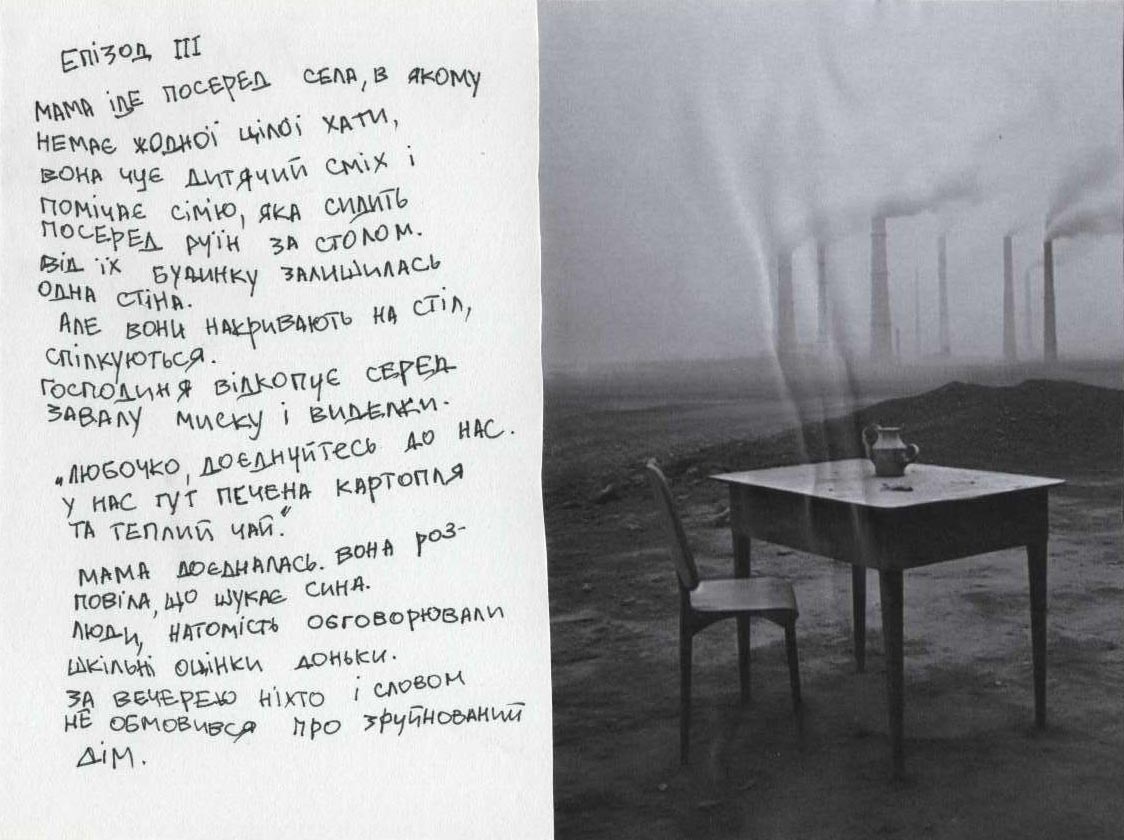 Епізод III
Мама іде посеред села, в якому
немає жодної цілої хати,
вона чує дитячий сміх і
помічає сімю, яка сидить
посеред руїн за столом.
Від їх будинку залишилась
одна стіна.
Але вони накривають на стіл,
спілкуються.
Господиня відкопує серед
завалу миску і виделки.
„Любочко, доєднуйтесь до нас.
У нас тут печена картопля
та теплий чай."
Мама доєдналась. Вона роз-
повіла, що шукає сина.
Люди, натомість обговорювали
шкільні оцінки доньки.
За вечерею ніхто і словом
не обмовився про зруйнований
дім.